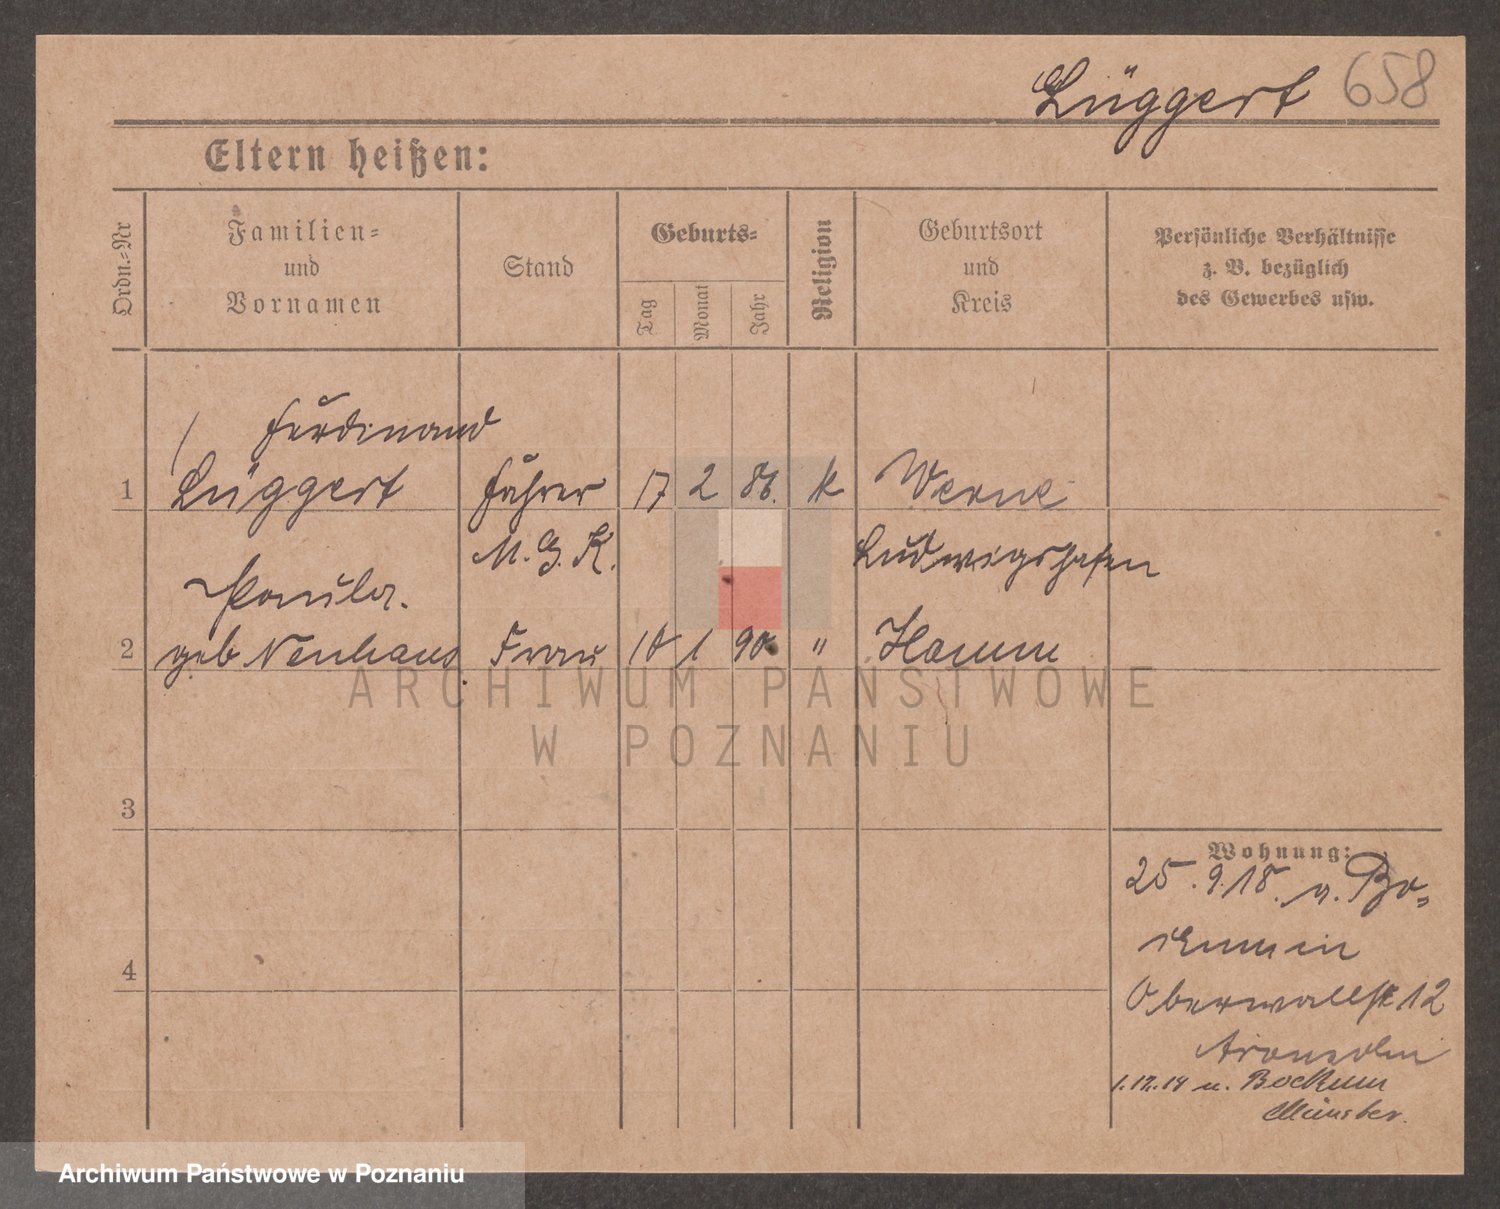 Lüggert 658
Eltern heißen:
Ordn.-Nr
Familien-
und
Vornamen
Stand
Geburts-
Tag
Monat
Jahr
Religion
Geburtsort
und
Kreis
Persönliche Verhältnisse
z. B. bezüglich
des Gewerbes usw.
Ferdinand
1 Lüggert Führer 17 2 86. k Werne
M. G. K. Ludwigshafen
Paula.
2 geb Neuhaus Frau 10 1 90. " Hamm
3
4
Wohnung:
25.9.18. n. Bo-
ckum in
Oberwallstr 12
1.12.19 n. Bockum
Münster.
ARCHIWUM PAŃSTWOWE
W POZNANIU
Archiwum Państwowe w Poznaniu